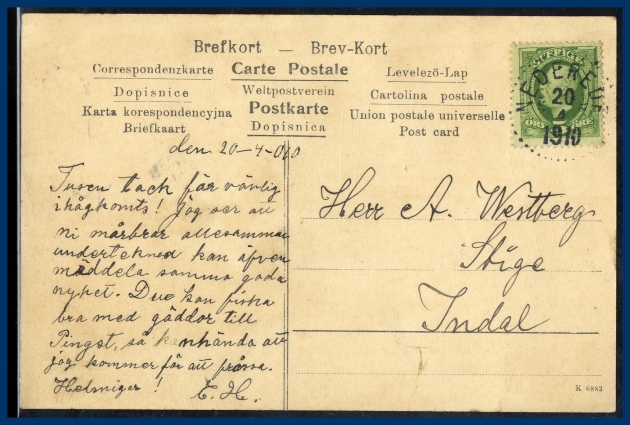 Brefkort — Brev-Kort
Correspondenzkarte Carte Postale Levelező-Lap
Dopisnice Weltpostverein Cartolina postale
Karta korespondencyjna Postkarte Union postale universelle
Briefkaart Dopisnica Post card
SVERIGE
20
4
1910
den 20-4-
Tusen tack för vänlig
ihågkomts! Jag ser att
ni mårbrar allesamman
undertekned kan äfven
meddela samma goda
nyhet. Due kan fiska
bra med gäddor till
Pingst, så kanhända att
jag kommer för att
Helsnigar!
E. H.
Herr A. Westberg
Stige
Indal
K 6883